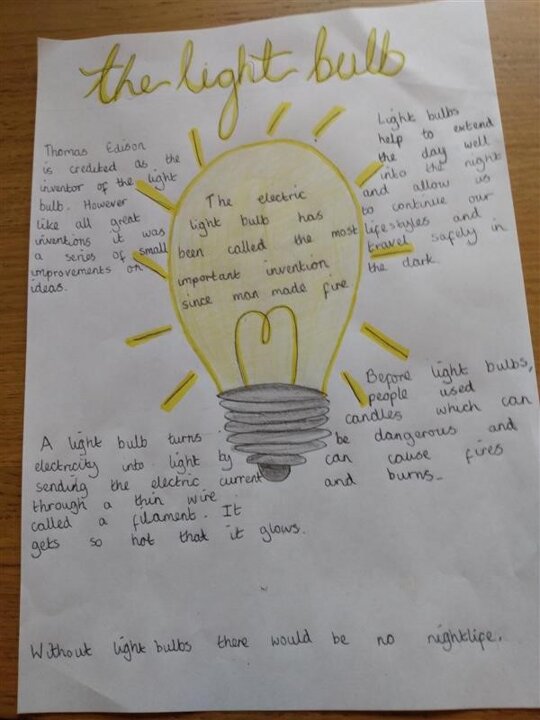 the light bulb
Thomas Edison
is credited as the
inventor of the light
bulb. However
like all great
inventions it was
a series of small
improvements on
ideas.
The electric
light bulb has
been called the most
important invention
since man made fire
Light bulbs
help to extend
the day well
into the night
and allow us
to continue our
lifestyles and
travel safely in
the dark.
A light bulb turns
electricity into light by
sending the electric current
through a thin wire
called a filament. It
gets so hot that it glows.
Before light bulbs,
people used
candles which can
be dangerous and
can cause fires
and burns.
Without light bulbs there would be no nightlife.